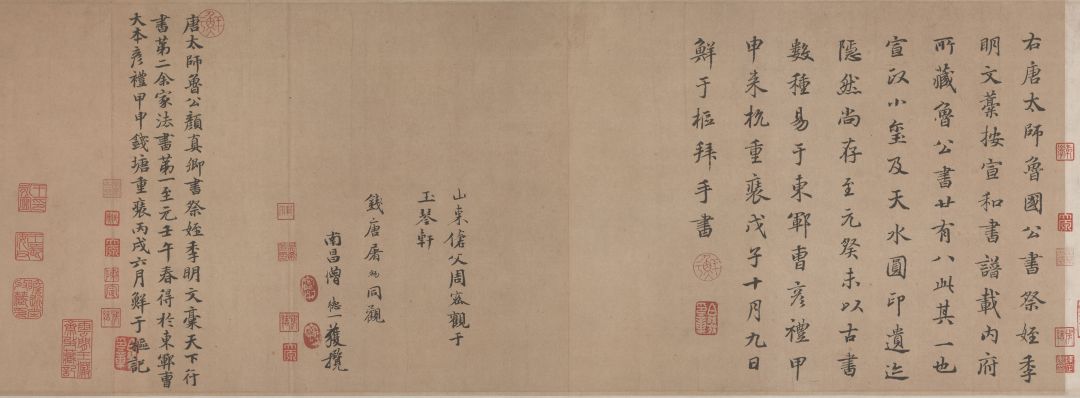 右唐太師魯國公書祭姪季
明文藁按宣和書譜載內府
所藏魯公書廿有八此其一也
宣政小璽及天水圓印遺迹
隱然尚存至元癸未以古書
數種易于東鄆曹彥禮甲
申來杭重裝戊子十月九日
鮮于樞拜手書
山東傖父周密觀于
玉琴軒
錢唐屠約同觀
南昌僧德一獲攬
唐太師魯公顏真卿書祭姪季明文藁天下行
書第二余家法書第一至元壬午春得於東鄆曹
大本彥禮甲申錢塘重裝丙戌六月鮮于樞記